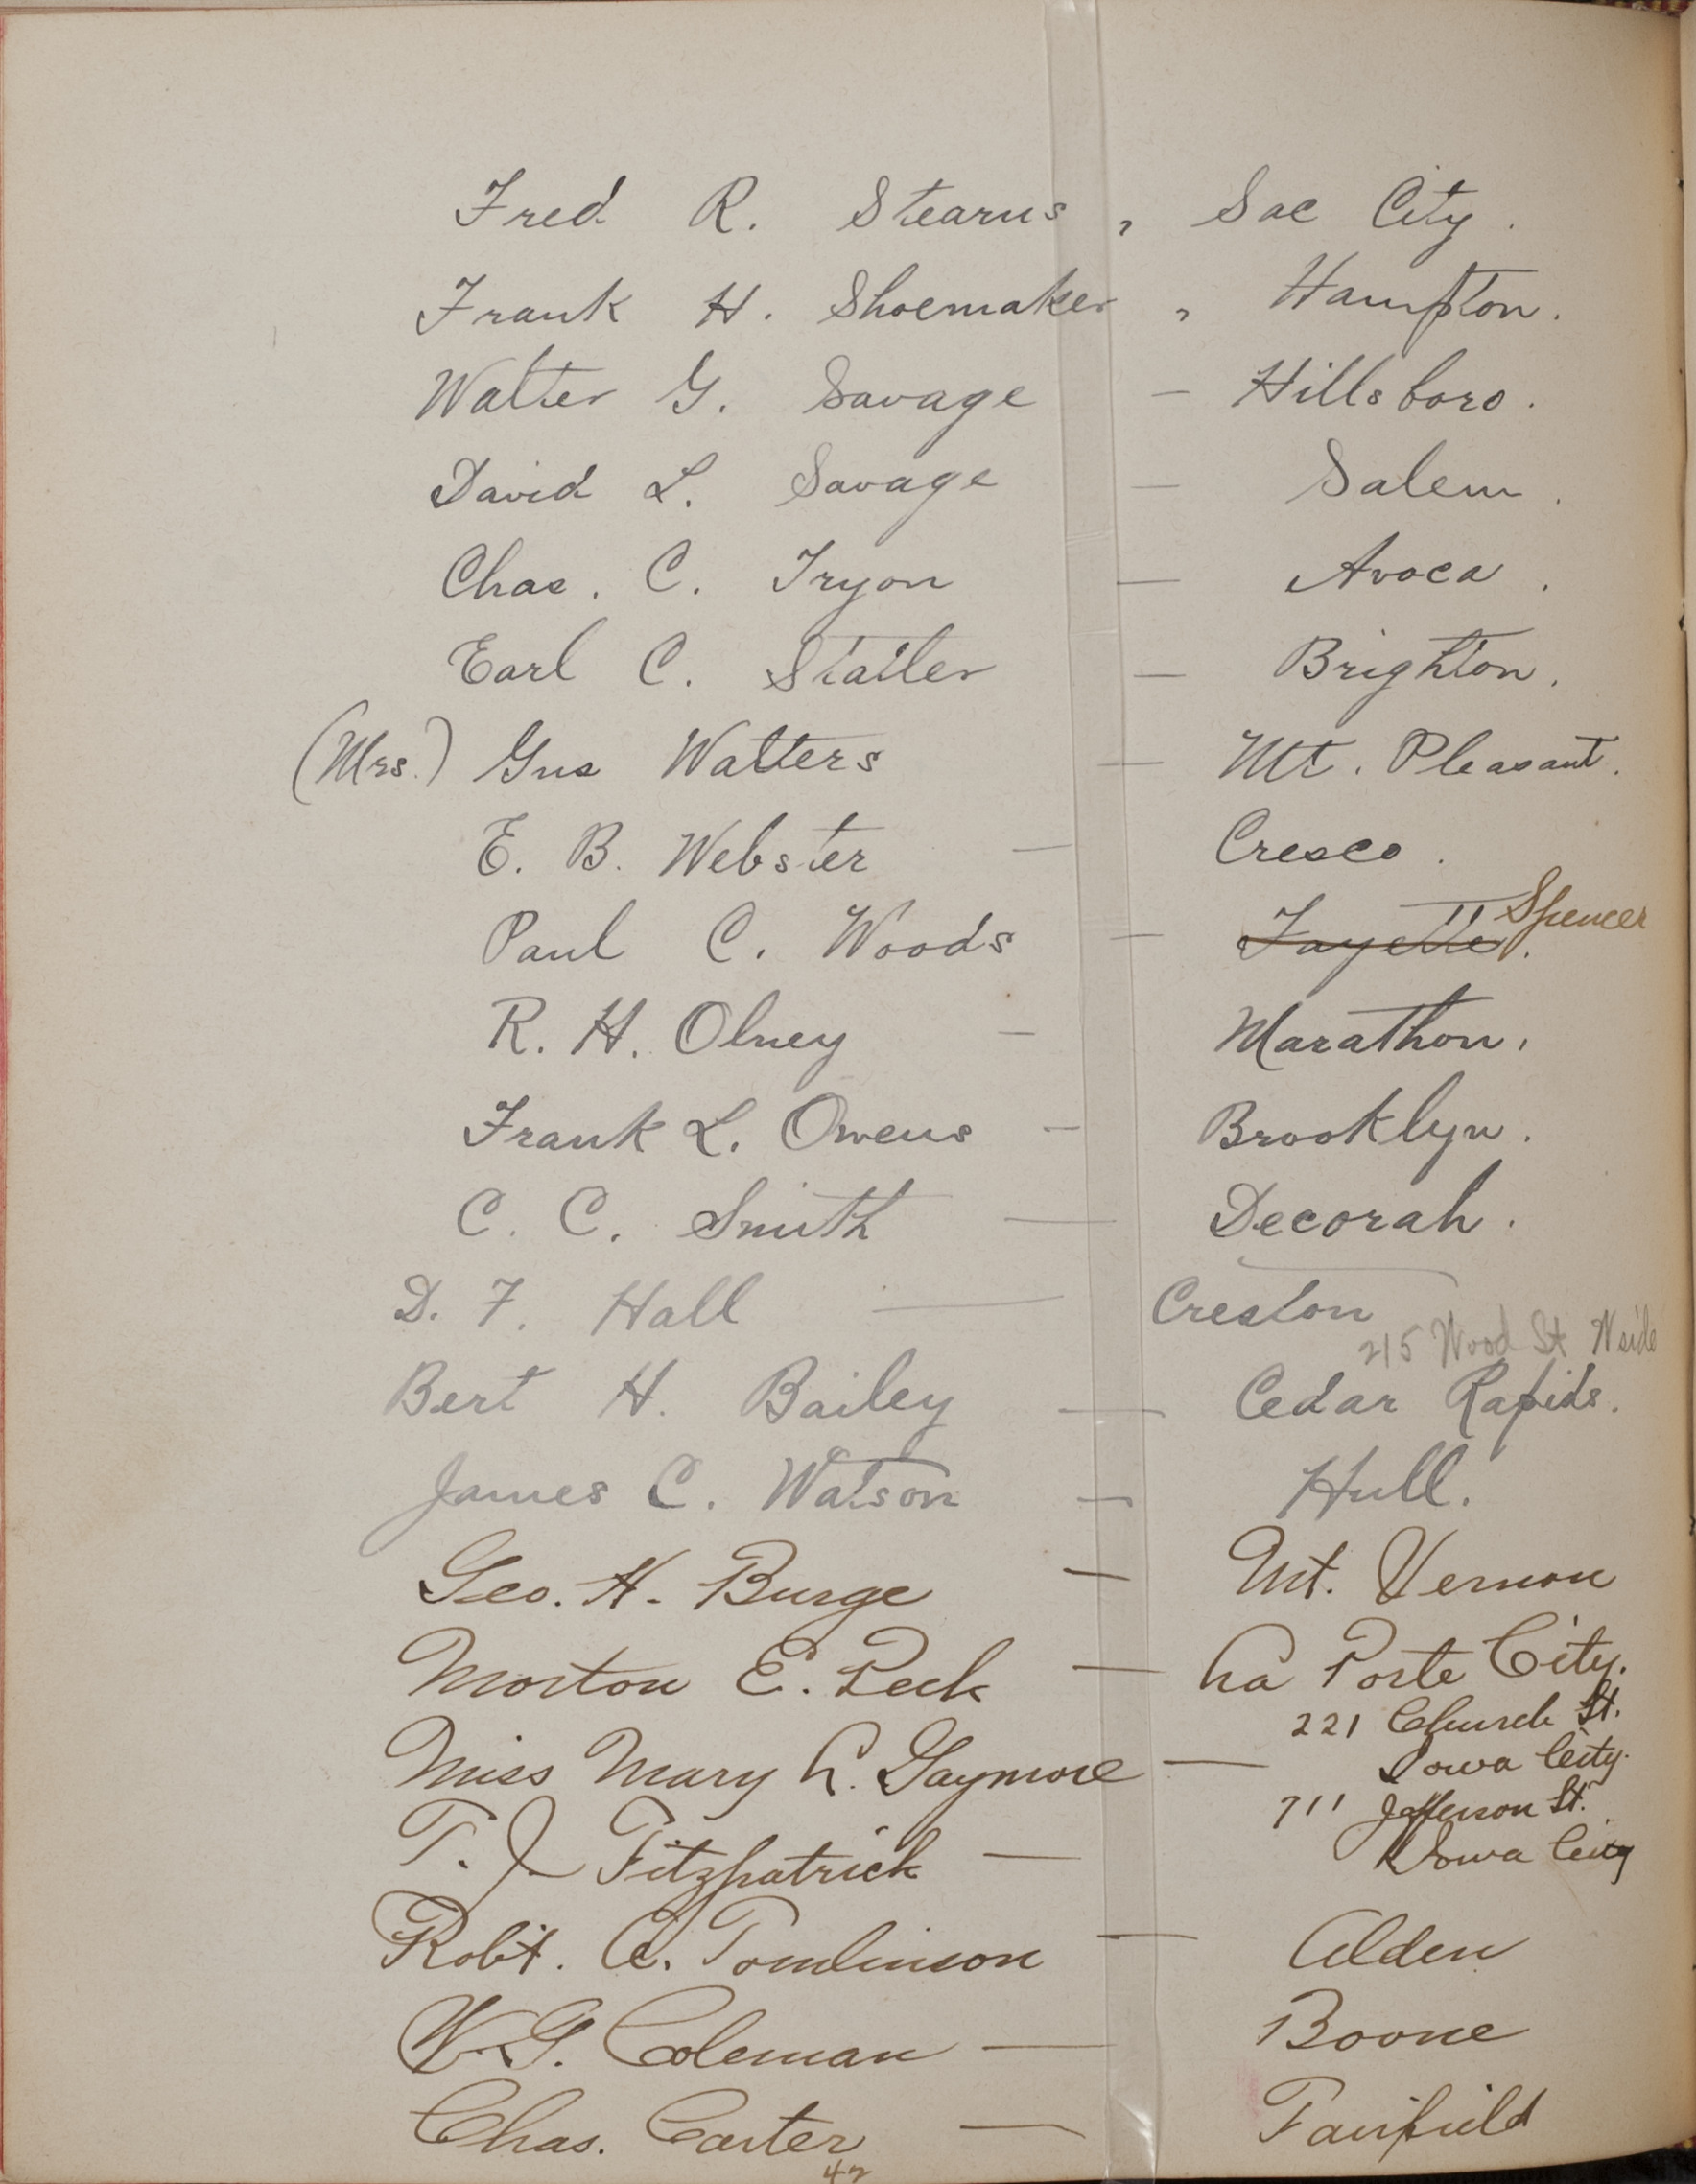 Fred R. Stearns, Sac City.
Frank H. Shoemaker, Hampton.
Walter G. Savage — Hillsboro.
David L. Savage — Salem.
Chas. C. Tryon — Avoca.
Earl C. Statler — Brighton.
(Mrs.) Gus Walters — Mt. Pleasant.
E. B. Webster — Cresco.
Paul C. Woods — Fayette. Spencer
R. H. Olney — Marathon.
Frank L. Owens — Brooklyn.
C. C. Smith — Decorah.
D. F. Hall — Creston
215 Wood St W side
Bert H. Bailey — Cedar Rapids.
James C. Watson — Hull.
Geo. H. Burge — Mt. Vernon
Morton E. Peck — La Porte City.
221 Church St.
Miss Mary L. — Iowa City.
711 Jefferson St.
T. J. Fitzpatrick — Iowa City
Robt. C. Tomlinson — Alden
W. G. Coleman — Boone
Chas. Carter — Fairfield
42